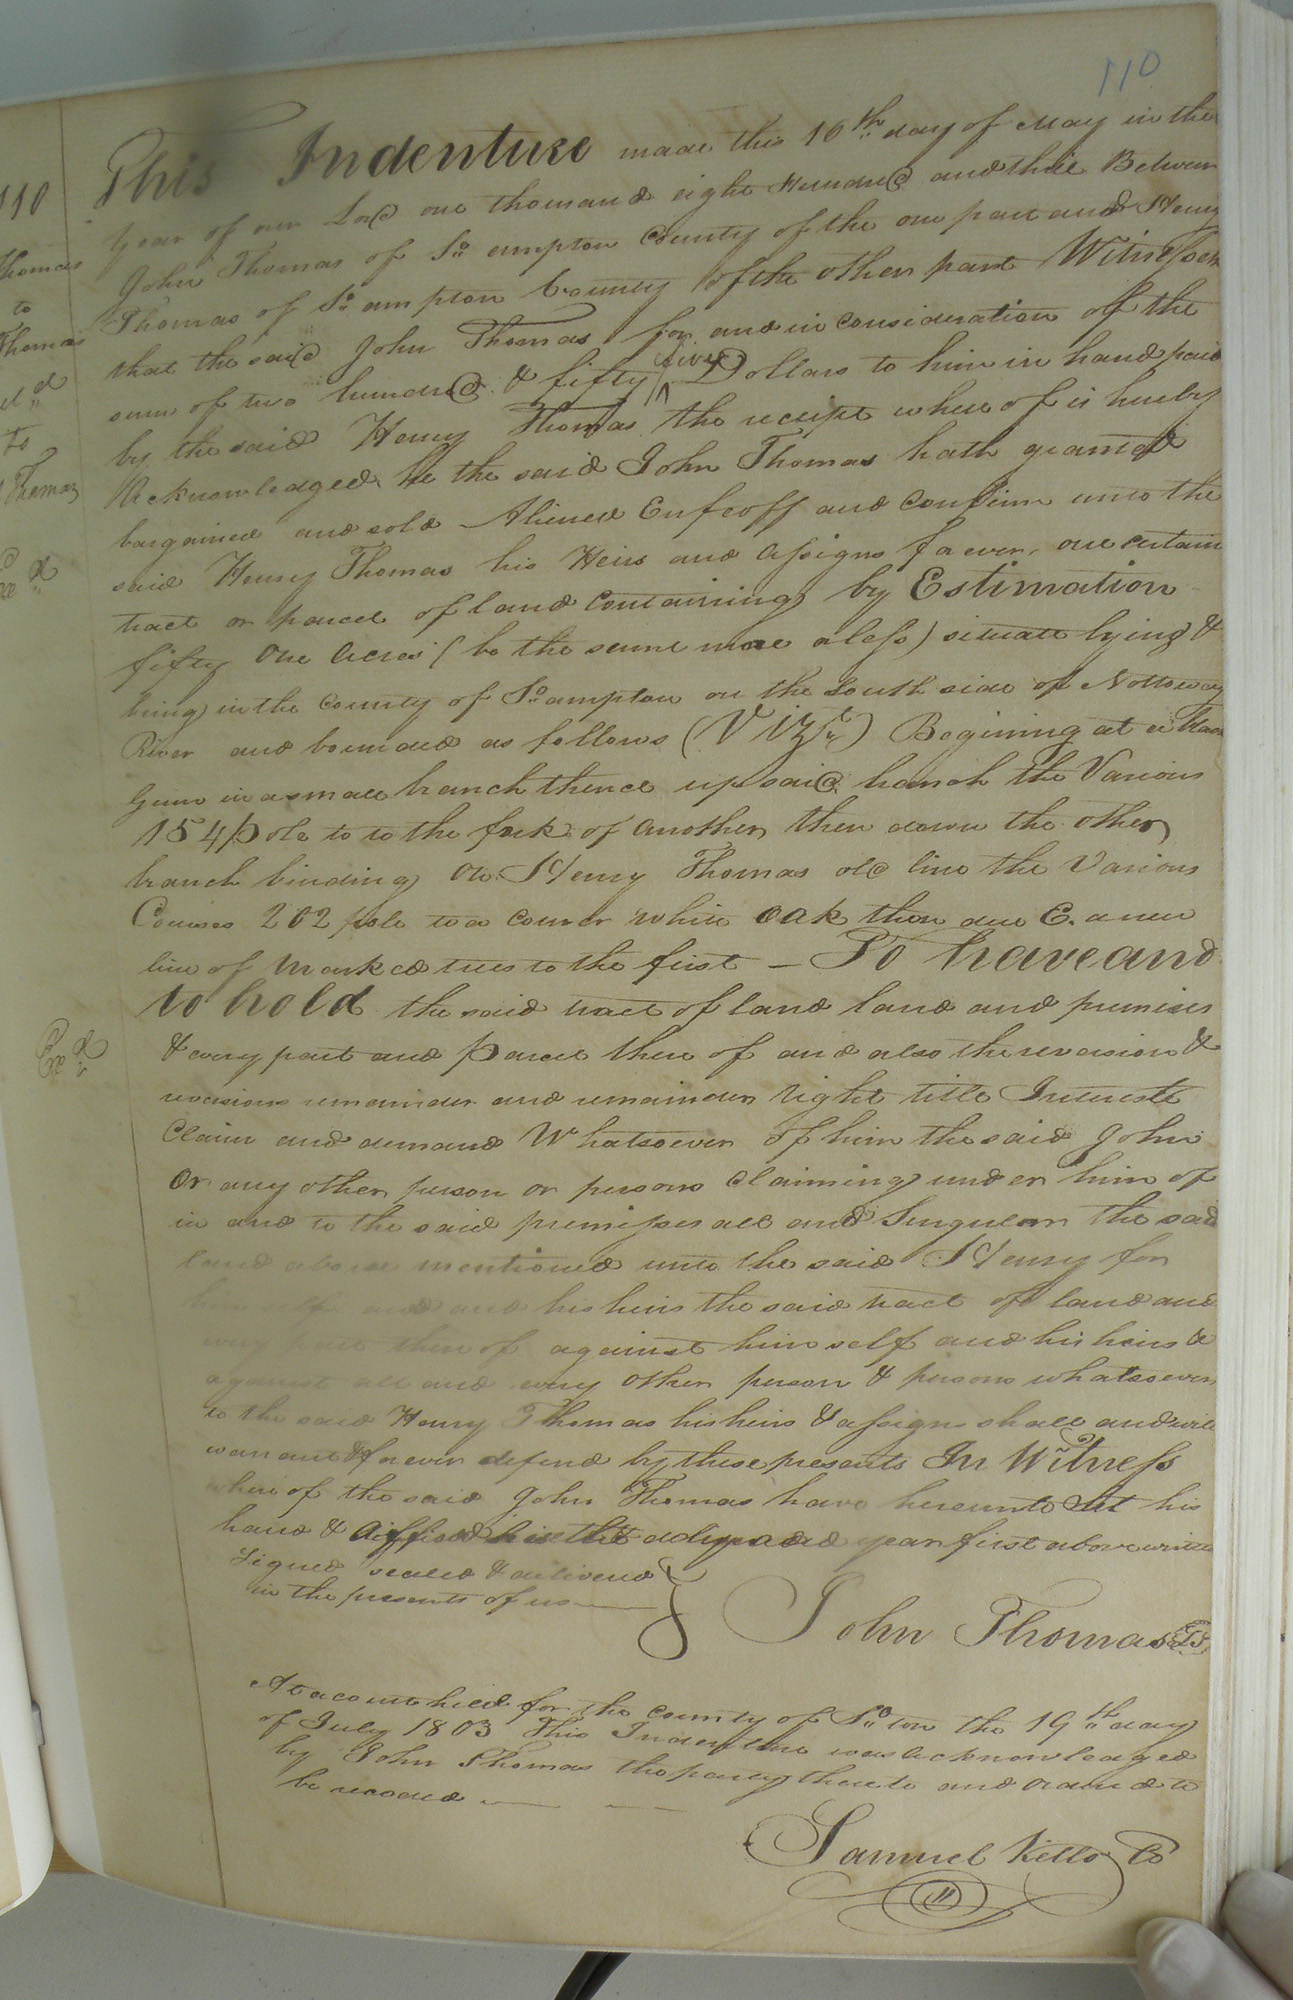 110
This Indenture made this 16th day of May in the
year of our Lord one thousand eight Hundred and three Between
John Thomas of So ampton County of the one part and Henry
Thomas of So ampton County of the other part Witnesseth
that the said John Thomas for and in consideration of the
sum of two hundred & fifty five Dollars to him in hand paid
by the said Henry Thomas the receipt where of is hereby
Acknowledged he the said John Thomas hath granted
bargained and sold Aliened Enfeoff and confirm unto the
said Henry Thomas his Heirs and assigns forever, one certain
tract or parcel of land containing by Estimation
fifty one acres (be the same more or less) situate lying &
being in the County of So ampton on the South side of Nottoway
River and bounded as follows (Vizt) Begining at a
Gum in a small branch thence up said branch the Various
154 pole to to the fork of another then down the other
branch binding on Henry Thomas old line the Various
Courses 202 pole to a corner white oak then due E. a new
line of marked trees to the first — To have and
to hold the said tract of land land and premises
& every part and parcel there of and also the reversion &
reversions remainder and remainders right title Interest
Claim and demand Whatsoever of him the said John
or any other person or persons claiming under him of
in and to the said premisses all and Singular the said
land above mentioned unto the said Henry for
him self and and his heirs the said tract of land and
every part there of against him self and his heirs &
against all and every other person & persons whatsoever
to the said Henry Thomas his heirs & assigns shall and will
warrant & forever defend by these presents In Witness
where of the said John Thomas have hereunto Set his
hand & Affixed his the day and year first above written
Signed sealed & delivered
in the presents of us
John Thomas LS
At a court held for the County of So ton the 19th day
of July 1803 This Indenture was acknowledged
by John Thomas the party thereto and ordered to
be recorded
Samuel Kello Co
110
Thomas
to
Thomas
d
To
Thomas
Exd